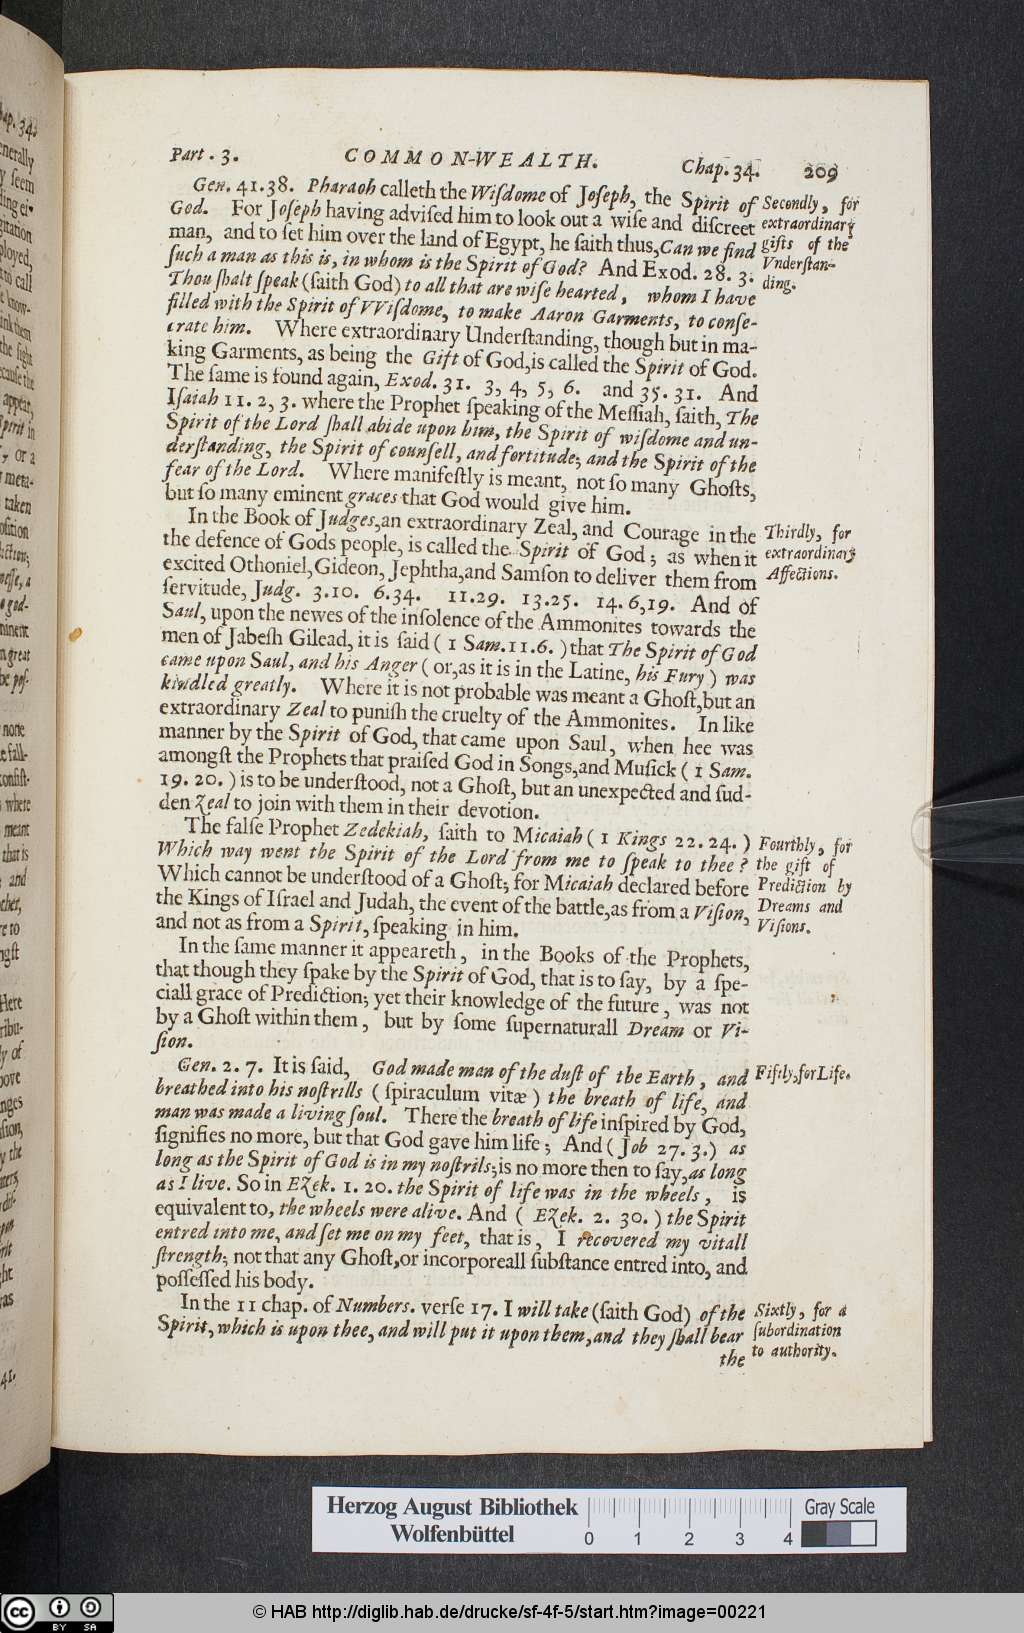 Part. 3. COMMON-WEALTH. Chap. 34. 209
Gen. 41.38. Pharaoh calleth the Wiſdome of Joſeph, the Spirit of
God. For Joſeph having adviſed him to look out a wiſe and diſcreet
man, and to ſet him over the land of Egypt, he ſaith thus, Can we find
ſuch a man as this is, in whom is the Spirit of God? And Exod. 28. 3.
Thou ſhalt ſpeak (ſaith God) to all that are wiſe hearted, whom I have
filled with the Spirit of VViſdome, to make Aaron Garments, to conſe-
crate him. Where extraordinary Underſtanding, though but in ma-
king Garments, as being the Gift of God, is called the Spirit of God.
The ſame is found again, Exod. 31. 3, 4, 5, 6. and 35. 31. And
Iſaiah 11. 2, 3. where the Prophet ſpeaking of the Meſſiah, ſaith, The
Spirit of the Lord ſhall abide upon him, the Spirit of wiſdome and un-
derſtanding, the Spirit of counſell, and fortitude; and the Spirit of the
fear of the Lord. Where manifeſtly is meant, not ſo many Ghoſts,
but ſo many eminent graces that God would give him.
Secondly, for
extraordinary
gifts of the
Vnderſtan-
ding.
In the Book of Judges, an extraordinary Zeal, and Courage in the
the defence of Gods people, is called the Spirit of God; as when it
excited Othoniel, Gideon, Jephtha, and Samſon to deliver them from
ſervitude, Judg. 3.10. 6.34. 11.29. 13.25. 14.6,19. And of
Saul, upon the newes of the inſolence of the Ammonites towards the
men of Jabeſh Gilead, it is ſaid ( 1 Sam. 11.6. ) that The Spirit of God
came upon Saul, and his Anger ( or, as it is in the Latine, his Fury ) was
kindled greatly. Where it is not probable was meant a Ghoſt, but an
extraordinary Zeal to puniſh the cruelty of the Ammonites. In like
manner by the Spirit of God, that came upon Saul, when hee was
amongſt the Prophets that praiſed God in Songs, and Muſick ( 1 Sam.
19. 20. ) is to be underſtood, not a Ghoſt, but an unexpected and ſud-
den Zeal to join with them in their devotion.
Thirdly, for
extraordinary
Affections.
The falſe Prophet Zedekiah, ſaith to Micaiah ( 1 Kings 22. 24. )
Which way went the Spirit of the Lord from me to ſpeak to thee?
Which cannot be underſtood of a Ghoſt; for Micaiah declared before
the Kings of Iſrael and Judah, the event of the battle, as from a Viſion,
and not as from a Spirit, ſpeaking in him.
Fourthly, for
the gift of
Prediction by
Dreams and
Viſions.
In the ſame manner it appeareth, in the Books of the Prophets,
that though they ſpake by the Spirit of God, that is to ſay, by a ſpe-
ciall grace of Prediction; yet their knowledge of the future, was not
by a Ghoſt within them, but by ſome ſupernaturall Dream or Vi-
ſion.
Gen. 2. 7. It is ſaid, God made man of the duſt of the Earth, and
breathed into his noſtrills ( ſpiraculum vitæ ) the breath of life, and
man was made a living ſoul. There the breath of life inſpired by God,
ſignifies no more, but that God gave him life; And ( Job 27. 3.) as
long as the Spirit of God is in my noſtrils; is no more then to ſay, as long
as I live. So in Ezek. 1. 20. the Spirit of life was in the wheels, is
equivalent to, the wheels were alive. And ( Ezek. 2. 30. ) the Spirit
entred into me, and ſet me on my feet, that is, I recovered my vitall
ſtrength; not that any Ghoſt, or incorporeall ſubſtance entred into, and
poſſeſſed his body.
Fiftly, for Life.
In the 11 chap. of Numbers. verſe 17. I will take (ſaith God) of the
Spirit, which is upon thee, and will put it upon them, and they ſhall bear
the
Sixtly, for a
ſubordination
to authority.
Herzog August Bibliothek
Wolfenbüttel
0 1 2 3 4
Gray Scale
cc BY SA
© HAB http://diglib.hab.de/drucke/sf-4f-5/start.htm?image=00221